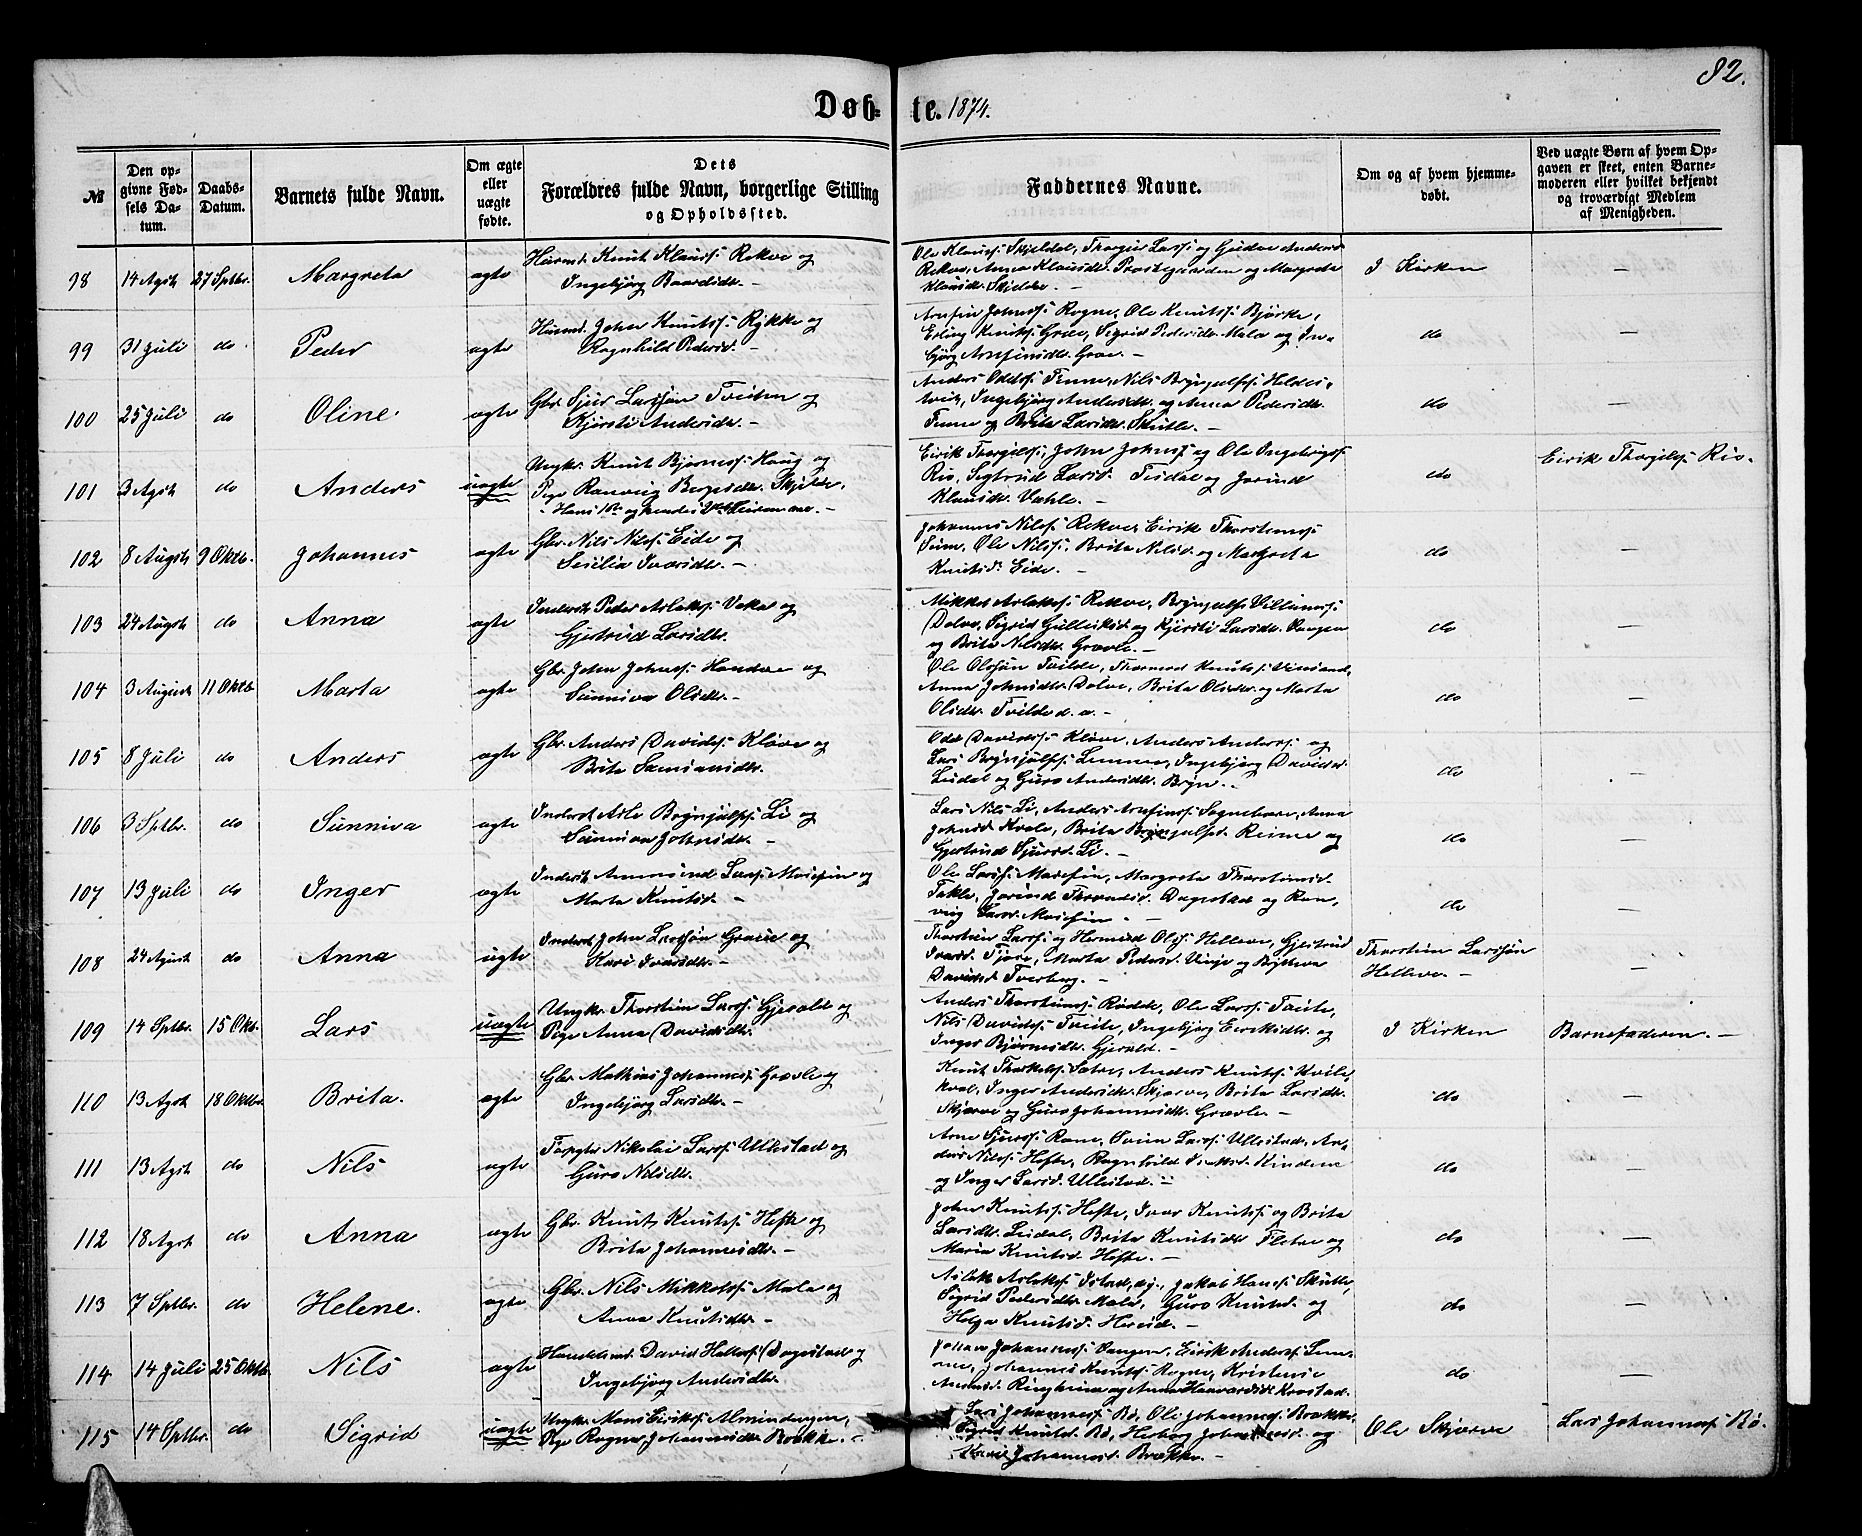 82.
Døb- te. 1874.
№
Den op-
givne Fød-
sels Da-
tum.
Daabs-
Datum.
Barnets fulde Navn.
Om ægte
eller
uægte
fødte.
Dets
Forældres fulde Navn, borgerlige Stilling
og Opholdssted.
Faddernes Navne.
Om og af hvem hjemme-
døbt.
Ved uægte Børn af hvem Op-
gaven er skeet, enten Barne-
moderen eller hvilket bekjendt
og troværdigt Medlem
af Menigheden.
98 14 Agst 27 Sptbr. Margreta ægte
Knut Klauss. Rekve og
Ingebjørg Baardsdtr. —
Ole Klauss. Skjeldal, Larss. og Gudve Anders
Rekve, Anna Klausdtr. Prestegaarden og Margreta
Klausdr. Skjelde. —
I Kirken —
99 31 Juli do Peder ægte
John Knutss. Rykke og
Ragnhild Pedersd. —
Arnfin Johnss. Rogne, Ole Knutss. Bjørke,
Erling Knutss. Græe, Sigrid Pedersdr. Mala og In-
bjørg Arnfinsdtr. Grae. —
do —
100 25 Juli do Oline ægte
Gbr. Sjur Larssøn Tveiten og
Kjersti Andersdr. —
Anders Oddss. Finne, Nils Brynjulfss. Heldes-
tveit, Ingebjørg Andersdtr. og Anna Pedersdtr.
Finne og Brita Larsdtr. Skutle. —
do —
101 3 Agst do Anders uægte
Ungkr. Knut Bjørness. Haug og
Pige Ranveig Skjelde,
Hans 1ste og hendes 2det Leiermaal. —
Eirik Thorgilss., John Johnss. og Ole
Rio, Sigtrud Larsd. Tesdal og Jorind
Klausdr. Væhle. —
do Eirik Thorgilss. Rio. —
102 8 Augst 9 Oktb. Johannes ægte
Gbr. Nils Nilss. Eide og
Sesilia Ivarsdtr. —
Johannes Nilss. Rekve, Eirik Thorstenss.
Seim, Ole Nilss., Brita Nilsd. og Margreta
Knutsd. Eide. —
do —
103 24 Augst do Anna ægte
Inderst Peder Aslakss. og
Gjertrud Larsdtr.
Mikkel Aslakss. Rekve, Brynjulf Villumss.
Dolve, Sigrid og Kjersti Larsdtr. Vangen
og Brita Nilsdtr. Grovle. —
do —
104 3 Augst 11 Oktb Marta ægte
Gbr. John Johnss. Handve og
Sunniva Olsdtr. —
Ole Olssøn Tvilde, Thormod Knutss. Vinsand,
Anna Johnsdtr. Dolve, Brita Olsdtr. og Marta
Olsdtr. Tvilde d. æ. —
do —
105 8 Juli do Anders ægte
Gbr. Anders Davidss. Kløve og
Brita
Odd Davidss. Kløve, Anders Anderss. og
Lars Brynjulfss. Ingebjørg Davidsd.
Leidal og Guro Andersdtr. Bryn. —
do —
106 3 Sptbr. do Sunniva ægte
Inderst Asle Brynjulfss. Li og
Sunniva Johnsdtr. —
Lars Nils Li, Anders Arnfinss. Anna
Johnsd. Kvale, Brita Brynjulfsd. Reime og
Gjertrud Sjursd. Li. —
do —
107 13 Juli do Inger ægte
Inderst Ammund Larss. og
Marta Knutsd. —
Ole Larss. Margreta Thorstensd.
Takle, Jorind Dagestad og Ran-
veig Larsd. —
do —
108 24 Agust do Anna ægte
Inderst John Larssøn Græe og
Kari Ivarsdtr. —
Thorstein Larss. og Olss. Helleve, Gjertrud
Ivarsd. Marta Pedersd. Vinje og
Davidsd. Tverberg. —
Thorstein Larssøn
Helleve. — —
109 14 Sptbr. 15 Okt. Lars uægte
Ungkr. Thorstein Larss. Gjerald og
Pige Anna Davidsdtr.
Anders Thorstenss. Rødde, Ole Larss. Tveite,
Nils Davidss. Tveite, Ingebjørg Eiriksdtr. og
Inger Bjørnsdtr. Gjerald. —
I Kirken Barnefaderen. —
110 13 Agst 18 Oktbr Brita. ægte
Gbr. Mathias Johanness. Grovle og
Ingebjørg Larsdtr. —
Knut Thorkelss. Sætre, Anders Knutss. Kvile-
kval, Inger Andersdr. Skjerve, Brita Larsdtr.
Skjerve og Guro Johannesdtr. Grovle. —
do —
111 13 Agst do Nils ægte
Nikolai Larss. Ullestad og
Guro Nilsdtr.
Arne Sjurss. Rone, Svein Larss. Ullestad, An-
ders Nilss. Hefte, Ragnhild Kindem
og Inger Larsd. Ullestad. —
do —
112 18 Agst do Anna ægte
Gbr. Knut Knutss. Hefte og
Brita Johannesdtr. —
John Knutss. Hefte, Ivar Knutss. og Brita
Larsdtr. Leidal, Brita Knutsdtr. Fletre og
Maria Knutsd. Hefte. —
do —
113 7 Sptbr. do Helene. ægte
Gbr. Nils Mikkelss. Mala og
Anna Knutsdtr. —
Aslak Aslakss. Istad, Jakob Hanss. Skutle,
Sigrid Pedersdtr. Mala, Guro Knutsd. og
Helga Knutsd. —
do —
114 14 Juli 25 Oktb. Nils ægte
Handelsmd. David Dagestad og
Ingebjørg Andersdtr.
Johan Johanness. Vangen, Eirik Anderss. Lem-
me, Johannes Knutss. Rogne, Kristense
Ringheim og Anna Krostad.
do —
115 14 Sptbr. do Sigrid uægte
Ungkr. Mons Eirikss. Almindingen,
Pige Ragna Johannesdtr. Brække. —
Lars Johanness. Bø, Ole Johanness. Brække,
Sigrid Knutsd. Bø, Herborg Johannesd. og
Kari Johannesd. Brække. —
Ole Skjerve Lars Johanness. Bø.